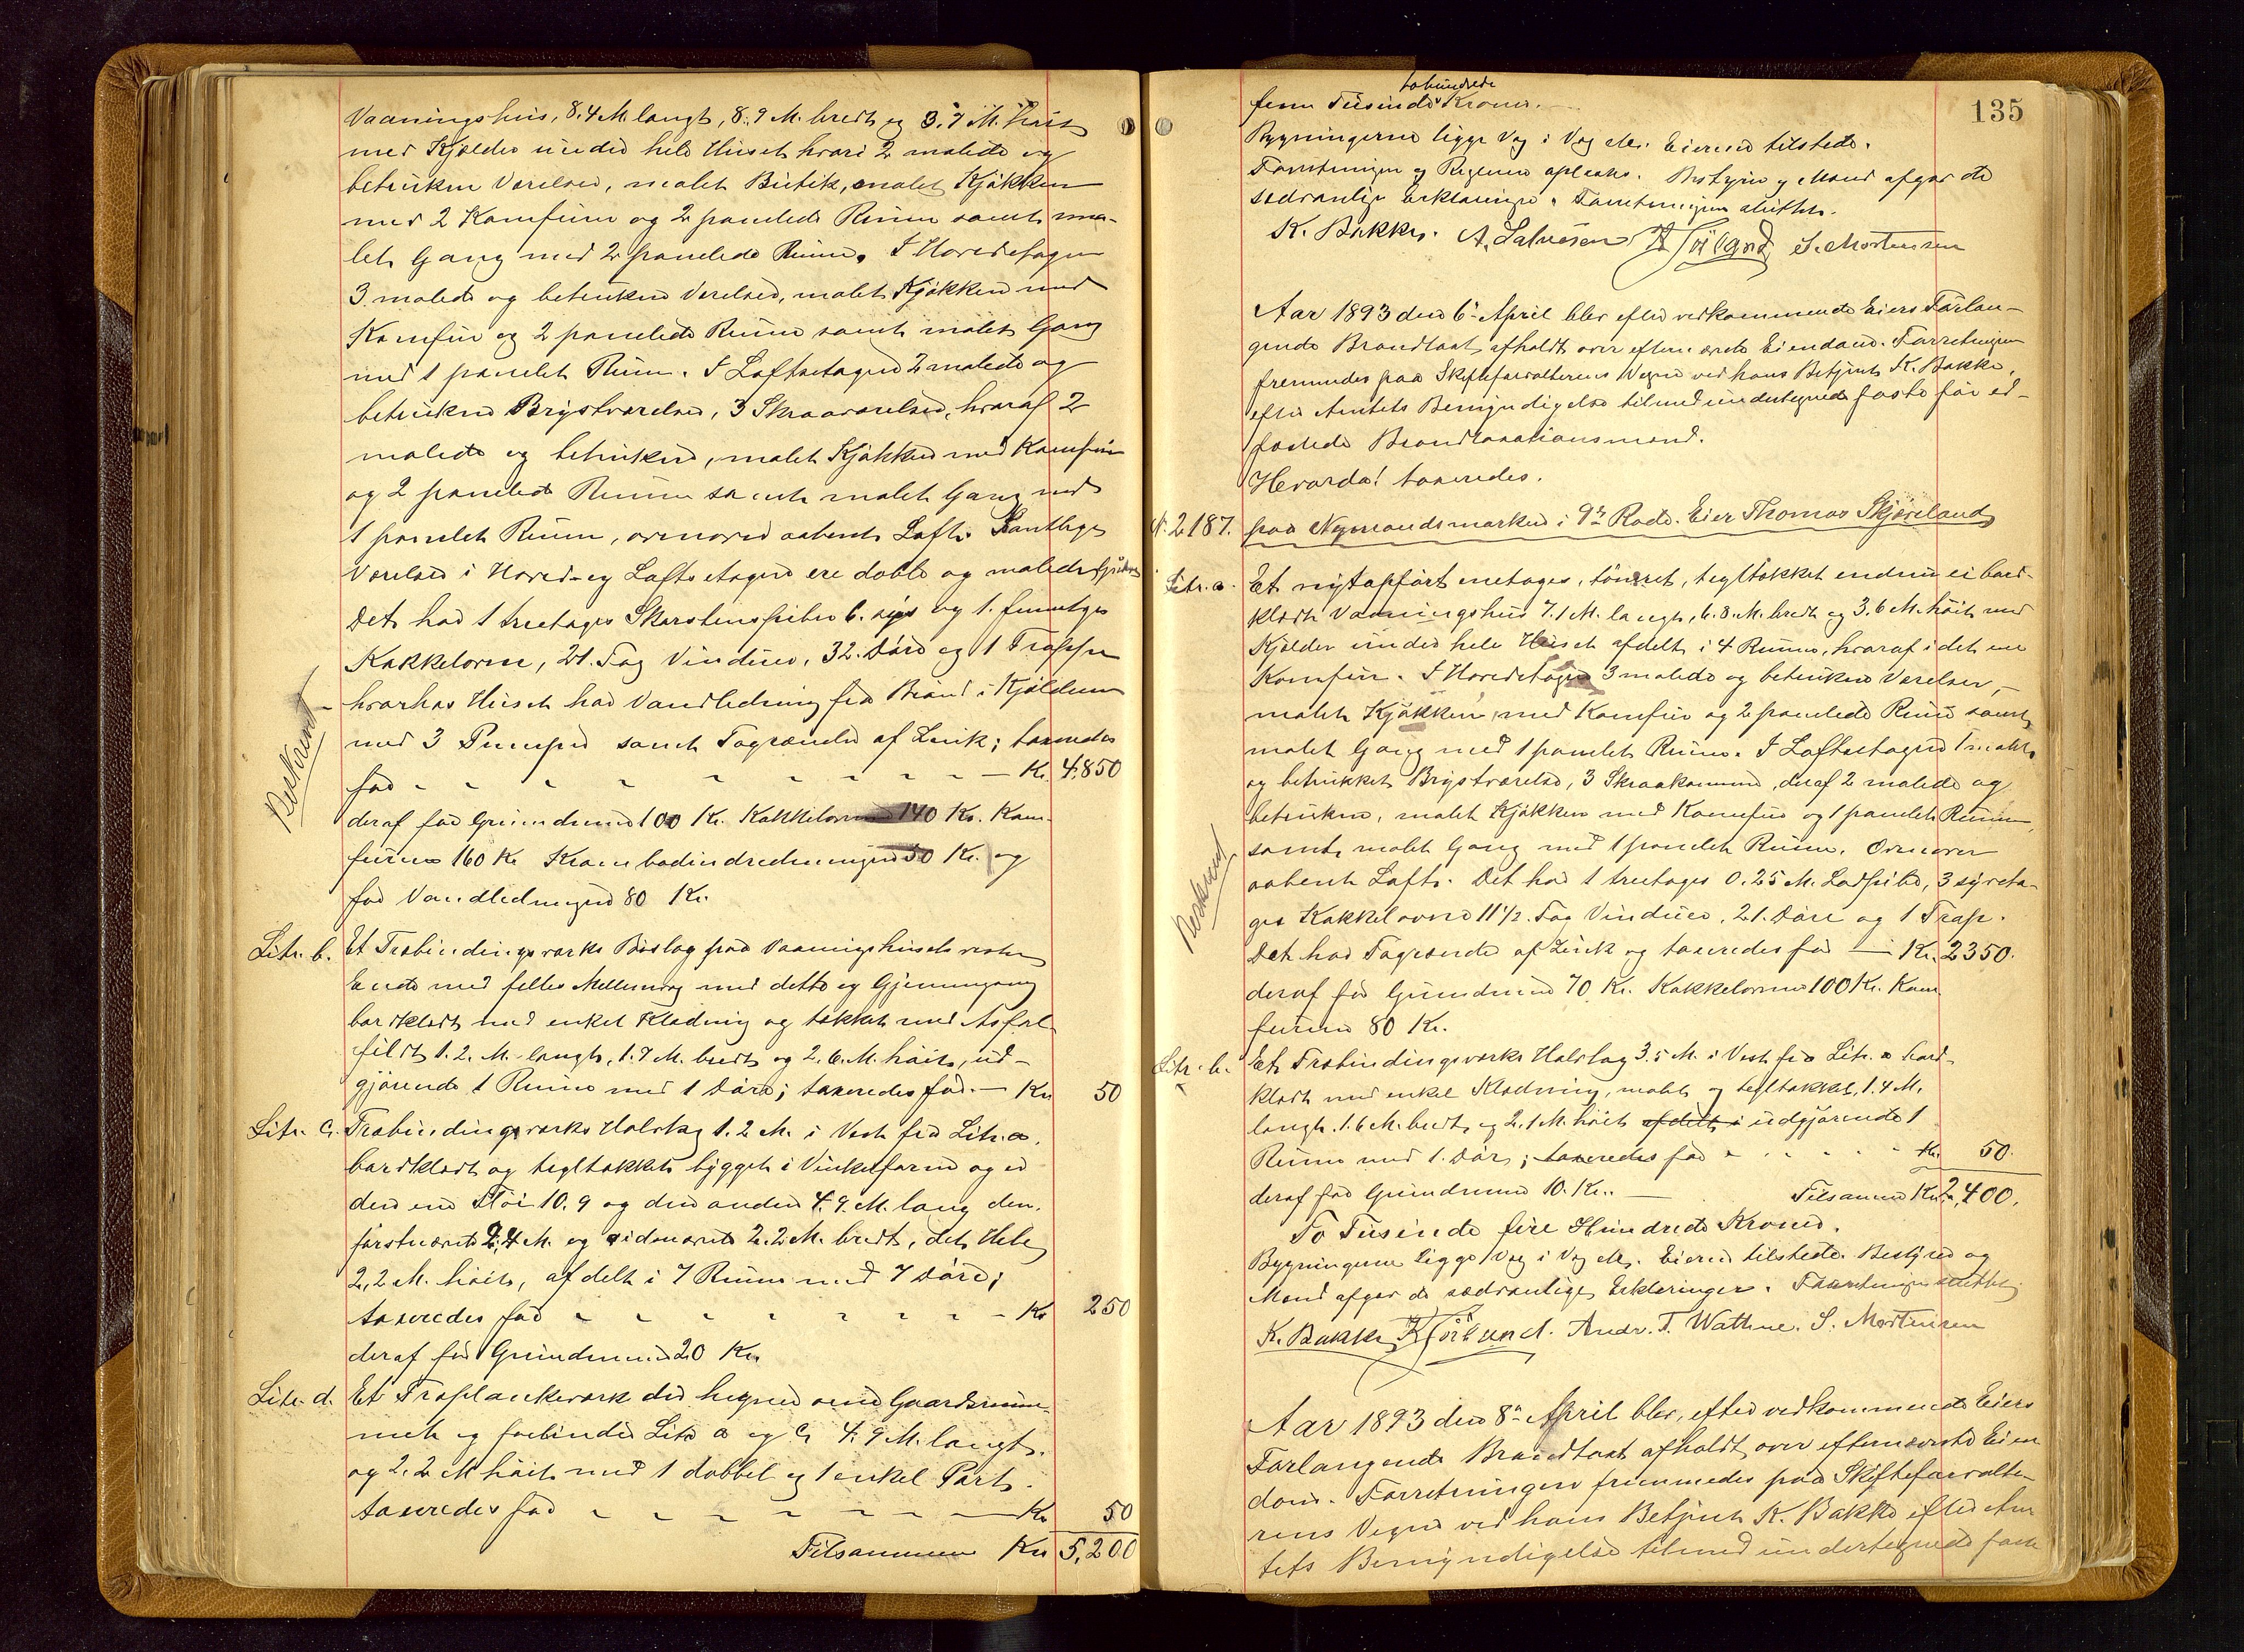 Vaaningshus, 8.4 M. langt, 8.9 M. bredt og 3.7 M. høit
med Kjelder under hele Huset hvori 2 malede og
betrukne Værelser, malet Butik, malet Kjøkken
med 2 Komfurer og 2 panelede Rum samt ma-
let Gang med 2 panelede Rum. I Hovedetagen
3 malede og betrukne Værelser, malet Kjøkken med
Komfur og 2 panelede Rum samt malet Gang
med 1 panelet Rum. I Loftsetagen 2 malede og
betrukne Brystværelser, 3 Skraaværelser, hvoraf 2
malede og betrukne, malet Kjøkken med Komfur
og 2 panelede Rum samt malet Gang med
1 panelet Rum, ovenover aabent Loft. Samtlige
Værelser i Hoved- og Loftsetagen ere doble og malede
Det har 1 treetages Skorstenspibe 6. og 1. femetges
Kakkelovne, 21. Fag Vinduer, 32. Døre og 1 Trappe
hvorhos Huset har Vandledning fra Brønd i Kjelderen
med 3 Pumper samt Tagrender af Zink; taxeredes
Beskrevet
for - - - - - - - - - Kr. 4,850
deraf for Grundmuren 100 Kr. Kakkelovnene 140 Kr. Kom-
furene 160 Kr Krambodindredningen 50 Kr. og
for Vandledningen 80 Kr.
Litr. b. Et Træbindingsverks Bislag paa Vaaningshusets vestre
Ende med fælles Mellemvæg med dette og Gjennemgang
bordklædt med enkel Klædning og tækket med Asfal-
filt 1.2. M. langt, 1.7 M. bredt og 2.6. M. høit, ud-
gjørende 1 Rum med 1 Dør; taxeredes for. - Kr 50
Litr. c. Træbindingsverks Halvtag 1.2 M. i Vest fra Litr. a.
bordklædt og tegltækket bygget i Vinkelform og er
den ene Fløi 10.9 og den anden 4.9. M. lang den
førstnævnte 2.4 M. og sidnævnte 2.2 M. bredt, det Hele
2,2 M. høit, afdelt i 7 Rum med 7 Døre;
taxeredes for - - - - - - - Kr 250
deraf for Grundmuren 20 Kr
Litr. d. Et Træplankeverk der hegner om Gaardsrum-
met og forbinder Litr a og c, 4.9 M. langt.
og 2.2 M høit med 1 dobbel og 1 enkel Port.
taxeredes for - - - - - - - Kr 50
Tilsammen Kr 5,200
135
tohundrede
fem Tusinde Kroner.
Bygningerne ligge Væg i Væg etc. Eieren tilstede.
Forretningen og Reglerne oplæstes. Bestyrer og Mænd afgav de
sædvanlige Erklæringer. Forretningen sluttet.
K. Bakke. A. Salvesen S. Mortensen
Aar 1893 den 6te April blev efter vedkommende Eiers Forlan-
gende Brandtaxt afholdt over efternævnte Eiendom. Forretningen
fremmedes paa Skifteforvalterens Vegne ved hans Betjent K. Bakke,
efter Amtets Bemyndigelse tilmed undertegnede faste for ed-
fæstede Brandtaxationsmænd.
Hvorda! taxeredes.
N. 2187. paa Nymandsmarken i 9de Rode. Eier Thomas Skjæveland
Litr. a. Et nytopført enetages, tømret, tegltækket endnu ei bord-
klædt Vaaningshus 7.1 M. langt, 6.8. M. bredt og 3.6 M. høit med
Kjelder under hele Huset afdelt i 4 Rum, hvoraf i det ene
Komfur. I Hovedetagen 3 malede og betrukne Værelser,
malet Kjøkken med Komfur og 2 panelede Rum samt
malet Gang med 1 panelet Rum. I Loftsetagen 1 malet
og betrukket Brystværelse, 3 Skraakammere, deraf 2 malede og
betrukne, malet Kjøkken med Komfur og 1 panelet Rum
samt malet Gang med 1 panelet Rum. Ovenover
aabent Loft. Det har 1 treetages 0.25 M. Lodpibe, 3
Beskrevet
ges Kakkelovne 11 1/2. Fag Vinduer. 21. Døre og 1 Trap.
Det har Tagrender af Zink og taxeredes for - Kr. 2350.
deraf for Grundmuren 70 Kr. Kakkelovnene 100 Kr. Kom-
furene 80 Kr.
Litr. b. Et Træbindingsverks Halvtag 3.5 M. i Vest fra Litr. a bord-
klædt med enkel Klædning, malet og tegltækket, 1.4 M.
langt. 1.6 M. bredt og 2.1 M. høit afdelt i udgjørende 1
Rum med 1. Dør; taxeredes for - - - - - Kr. 50.
deraf for Grundmuren 10. Kr. - Tilsammen Kr. 2,400.
To Tusinde fire Hundrede Kroner.
Bygningerne ligge Væg i Væg etc. Eieren tilstede. Bestyrer og
Mænd afgav de sædvanlige Erklæringer. Forretningen sluttet.
K. Bakke Andr. T. Wathne. S. Mortensen
Aar 1893 den 8de April blev, efter vedkommende Eiers
Forlangende Brandtaxt afholdt over efternævnte Eien
dom. Forretningen fremmedes paa Skifteforvalte-
rens Vegne ved hans Betjent K. Bakke efter Am
tets Bemyndigelse tilmed undertegnede faste